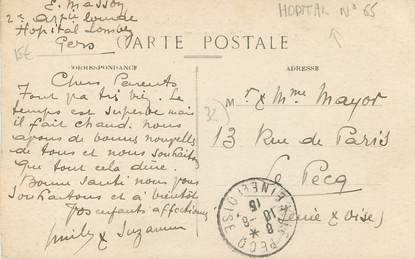 E. Massoy
Hopital Lombez
Gers
15€
HOPITAL N° 55
CARTE POSTALE
CORRESPONDANCE
ADRESSE
Chers Parents
Tout va très bien. Le
temps est superbe mais
il fait chaud. nous
avons de bonnes nouvelles
de tous et nous souhaitons
que tout cela dure.
Bonne santé nous vous
souhaitons et à bientôt
vos enfants affectionnés
Emile & Suzanne
32
Mr & Mme Mayor
13 Rue de Paris
Le Pecq
(Seine & Oise)
LE PECQ SEINE ET OISE
8
10-8
15